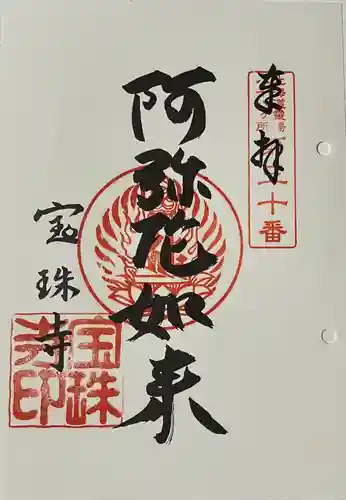 奉拝
二十番
阿弥陀如来
宝珠寺
宝珠
寺印